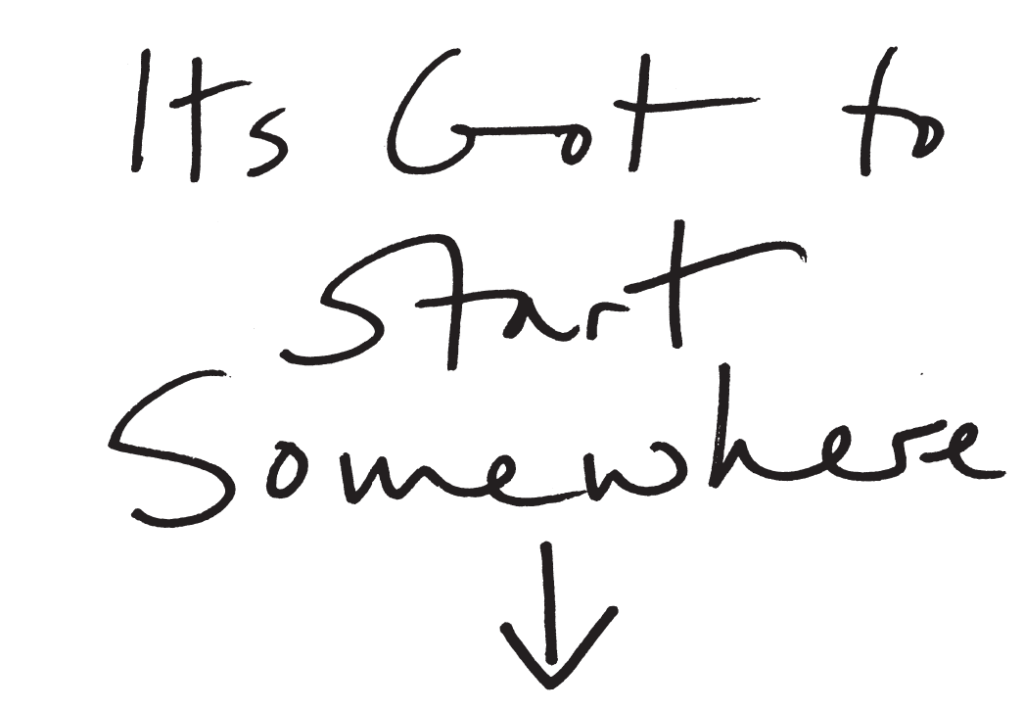 Its Got to
Start
Somewhere